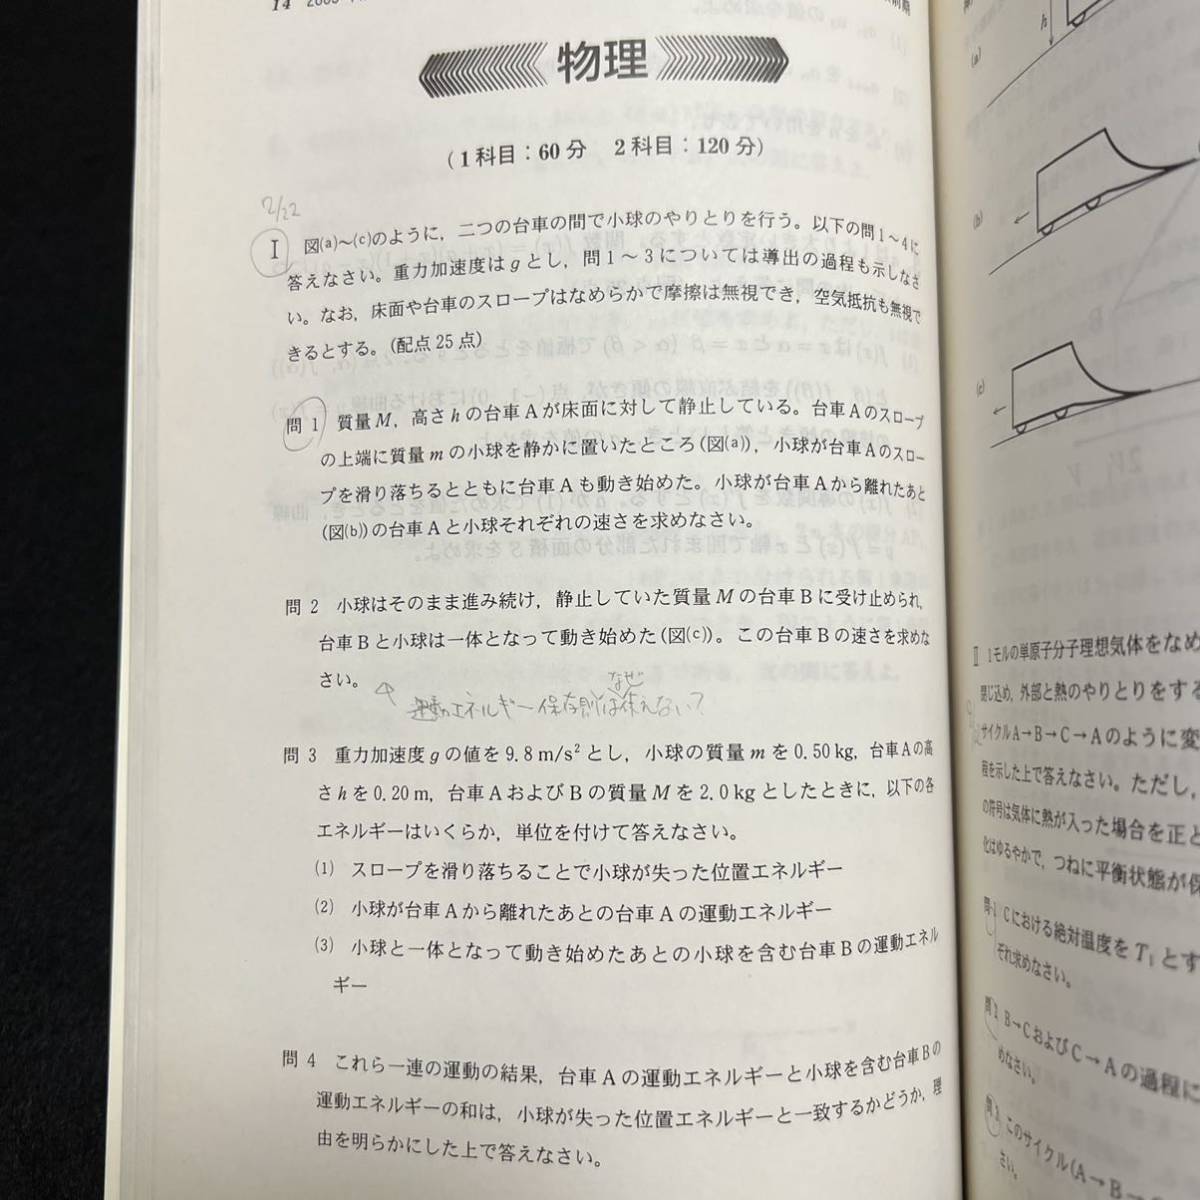 14
物理
(1科目：60分　2科目：120分)
2/22
Ⅰ　図(a)～(c)のように，二つの台車の間で小球のやりとりを行う。以下の問1～4に
答えなさい。重力加速度はgとし，問1～3については導出の過程も示しなさ
い。なお，床面や台車のスロープはなめらかで摩擦は無視でき，空気抵抗も無視で
きるとする。(配点25点)
問1　質量M，高さhの台車Aが床面に対して静止している。台車Aのスロープ
の上端に質量mの小球を静かに置いたところ(図(a))，小球が台車Aのスロー
プを滑り落ちるとともに台車Aも動き始めた。小球が台車Aから離れたあと
(図(b))の台車Aと小球それぞれの速さを求めなさい。
問2　小球はそのまま進み続け，静止していた質量Mの台車Bに受け止められ，
台車Bと小球は一体となって動き始めた(図(c))。この台車Bの速さを求めな
さい。
なぜ
運動エネルギー保存則は使えない？
問3　重力加速度gの値を9.8m/s²とし，小球の質量mを0.50kg，台車Aの高
さhを0.20m，台車AおよびBの質量Mを2.0kgとしたときに，以下の各
エネルギーはいくらか，単位を付けて答えなさい。
(1)　スロープを滑り落ちることで小球が失った位置エネルギー
(2)　小球が台車Aから離れたあとの台車Aの運動エネルギー
(3)　小球と一体となって動き始めたあとの小球を含む台車Bの運動エネル
ギー
問4　これら一連の運動の結果，台車Aの運動エネルギーと小球を含む台車Bの
運動エネルギーの和は，小球が失った位置エネルギーと一致するかどうか，理
由を明らかにした上で答えなさい。
h
(a)
(b)
(c)
Ⅱ　1モルの単原子分子理想気体をなめ
閉じ込め，外部と熱のやりとりをする
サイクルA→B→C→Aのように変
程を示した上で答えなさい。ただし，
の符号は気体に熱が入った場合を正と
化はゆるやかで，つねに平衡状態が保
問1　Cにおける絶対温度をT₁とす
ぞれ求めなさい。
問2　B→CおよびC→Aの過程に
めなさい。
問3　このサイクル(A→B→
さい。